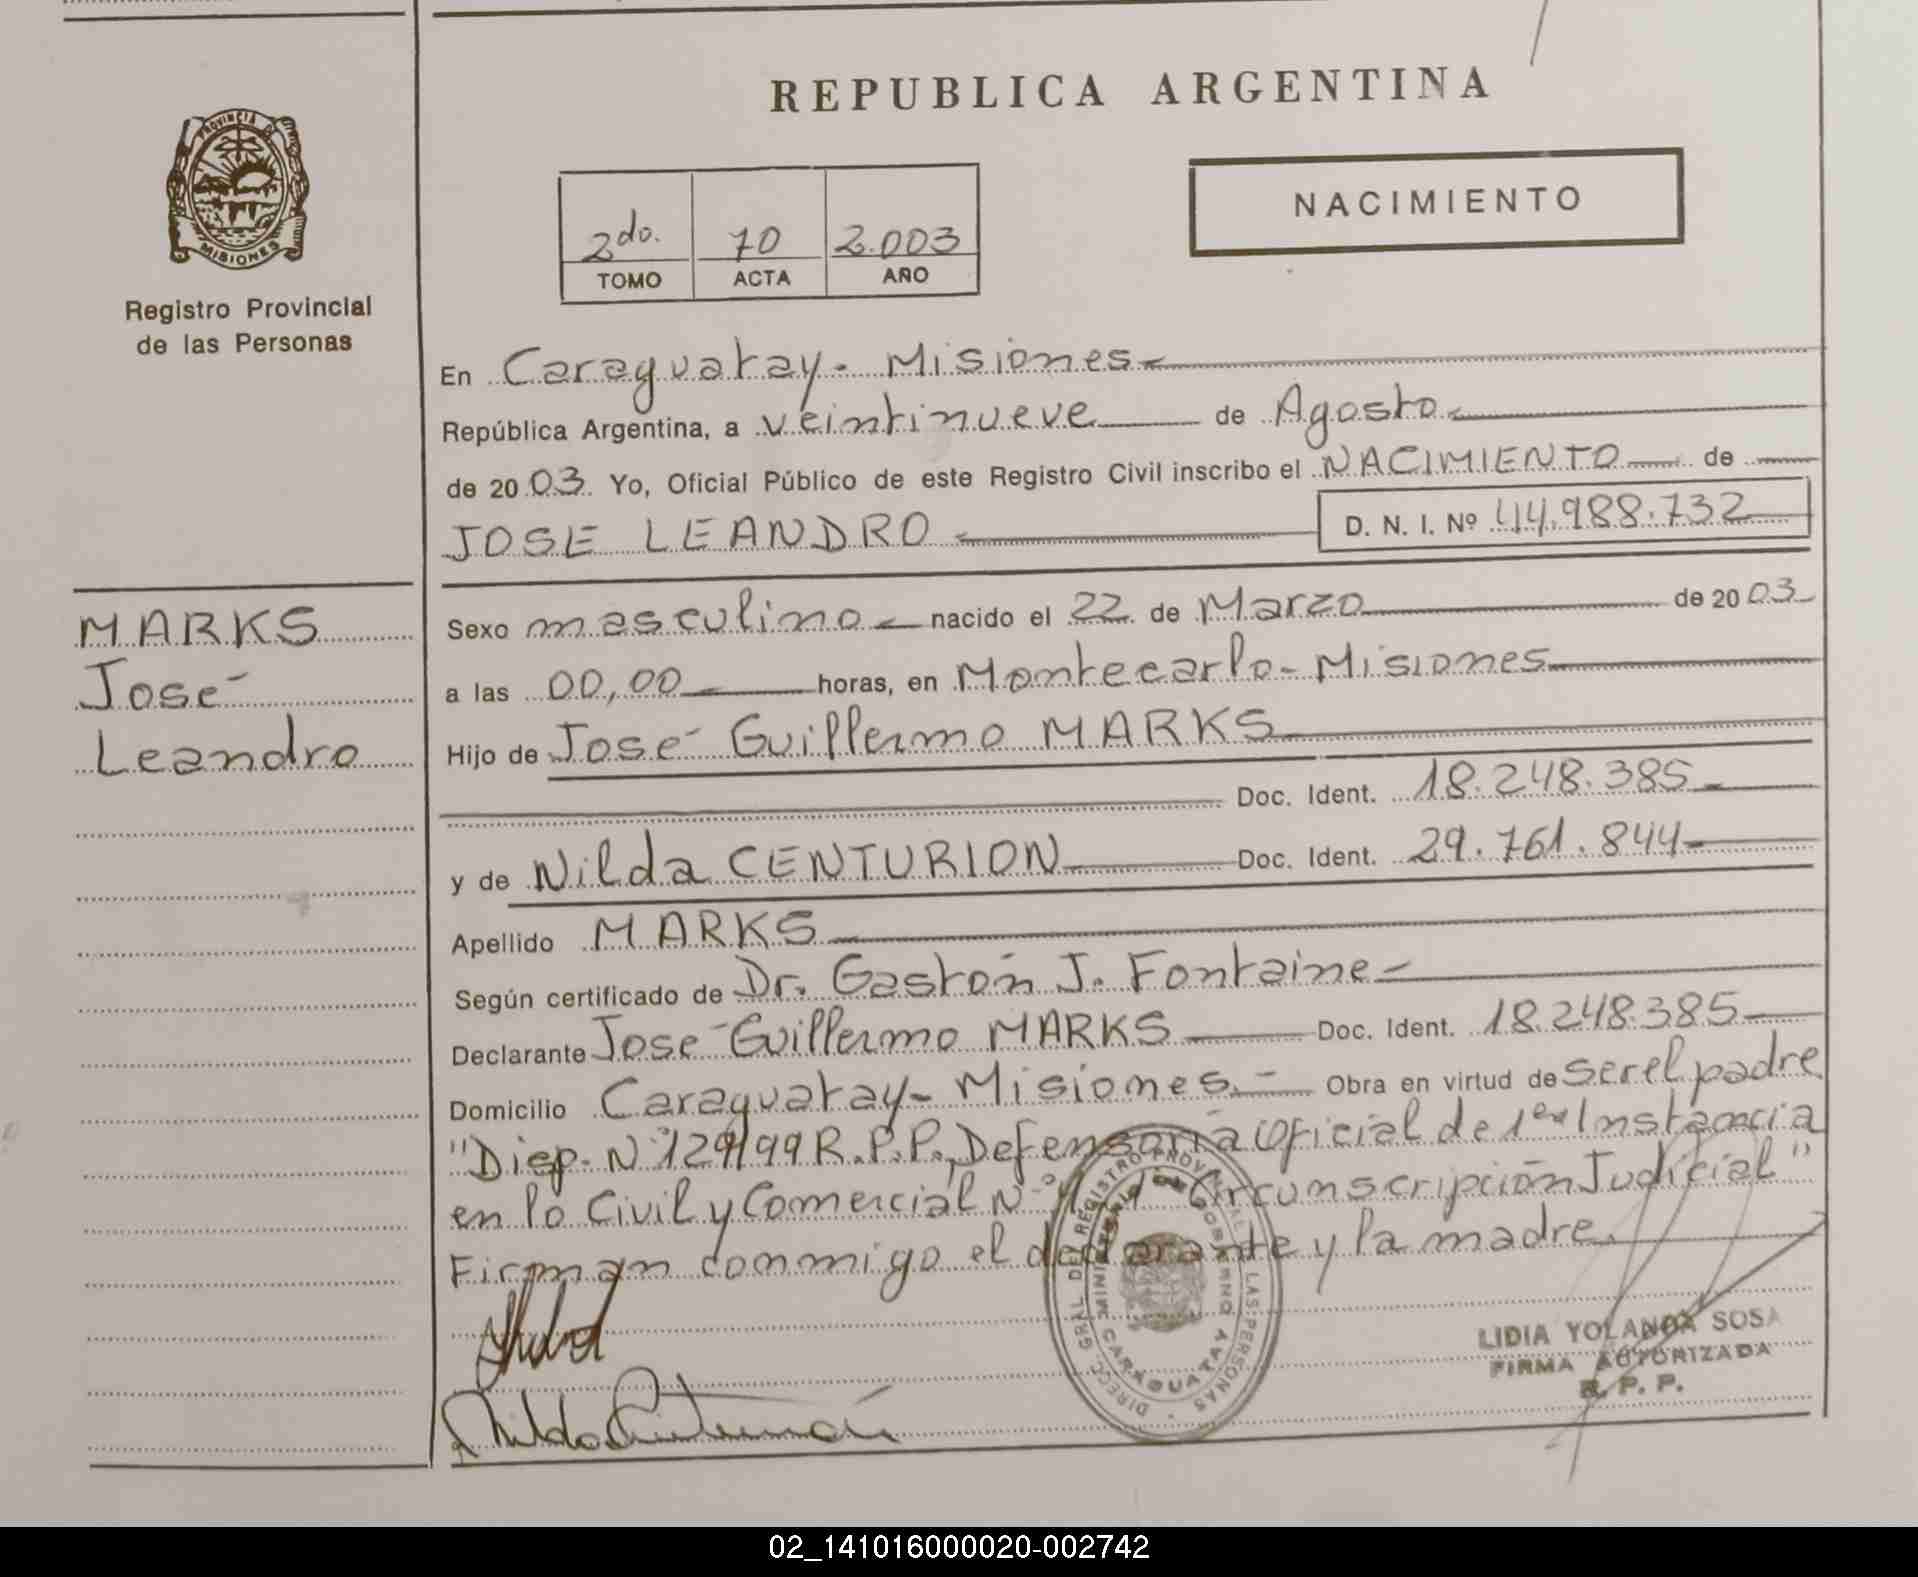 REPUBLICA ARGENTINA
PROVINCIA DE
MISIONES
Registro Provincial
de las Personas
NACIMIENTO
2do. 70 2.003
TOMO ACTA AÑO
En Caraguatay - Misiones
República Argentina, a veintinueve de Agosto
de 2003 Yo, Oficial Público de este Registro Civil inscribo el NACIMIENTO de
JOSE LEANDRO D. N. I. Nº 44.988.732
MARKS
José
Leandro
Sexo masculino nacido el 22 de Marzo de 2003
a las 00,00 horas, en Montecarlo - Misiones
Hijo de José Guillermo MARKS
Doc. Ident. 18.248.385
y de Nilda CENTURION Doc. Ident. 29.761.844
Apellido MARKS
Según certificado de Dr. Gastón J. Fontaine
Declarante José Guillermo MARKS Doc. Ident. 18.248.385
Domicilio Caraguatay - Misiones. Obra en virtud de ser el padre
"Disp. Nº 129/99 R.P.P., Defensoría Oficial de 1era Instancia
en lo Civil y Comercial Nº Circunscripción Judicial"
Firman conmigo el declarante y la madre.
DIRECC. GRAL. DEL REGISTRO PROVINCIAL LAS PERSONAS
MINISTERIO DE GOBIERNO
CARAGUATAY
LIDIA YOLANDA SOSA
FIRMA AUTORIZADA
R. P. P.
02_141016000020-002742